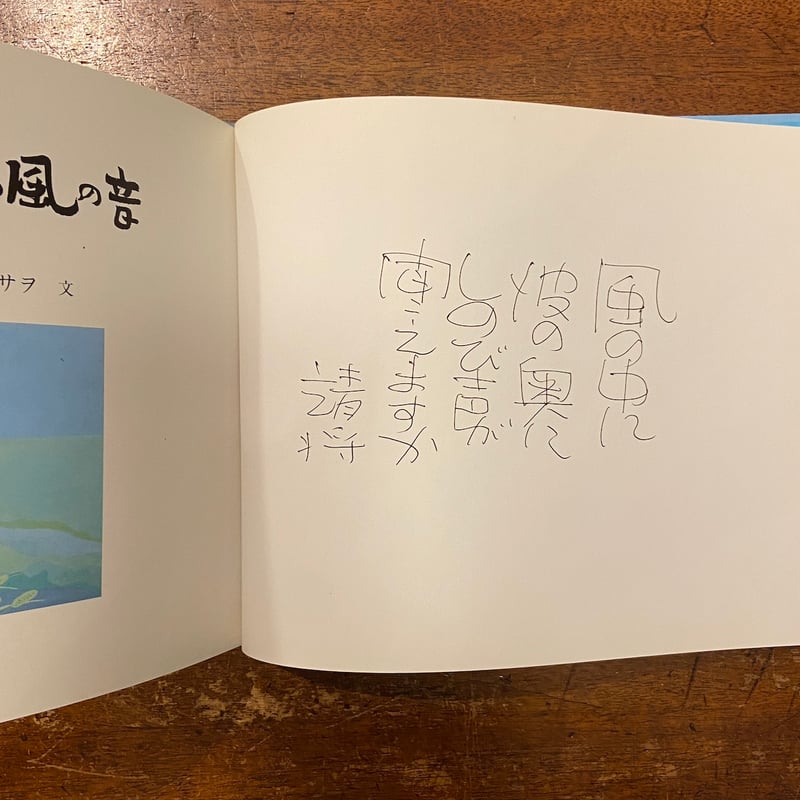 風の音
サヲ 文
風の中に
波の奥に
しのび音が
聞こえますか
靖将